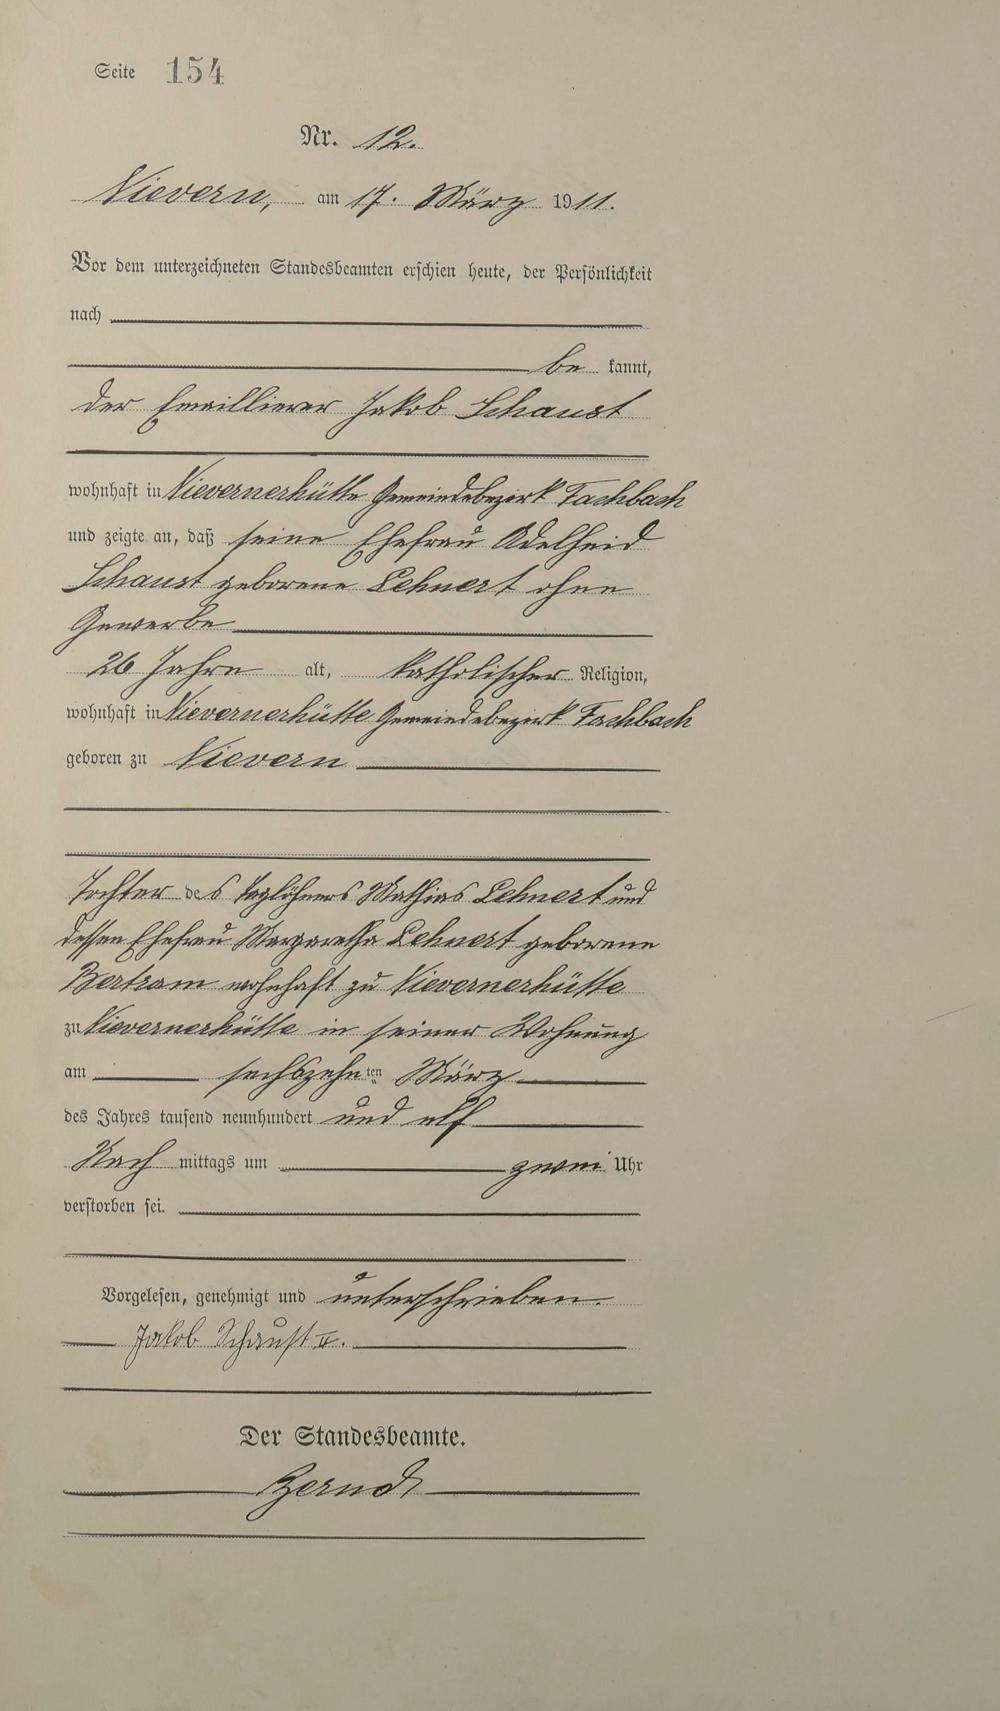 Seite 154
Nr. 12.
Nievern, am 17. März 1911.
Vor dem unterzeichneten Standesbeamten erschien heute, der Persönlichkeit
nach
be kannt,
der Emaillierer Jakob Schaust
wohnhaft in Nievernerhütte Gemeindebezirk Fachbach
und zeigte an, daß seine Ehefrau Adelheid
Schaust geborene Lehnert ohne
Gewerbe
26 Jahre alt, katholischer Religion,
wohnhaft in Nievernerhütte Gemeindebezirk Fachbach
geboren zu Nievern
Tochter des Taglöhners Mathias Lehnert und
dessen Ehefrau Margaretha Lehnert geborene
Bertram wohnhaft zu Nievernerhütte
zu Nievernerhütte in seiner Wohnung
am sechszehnten März
des Jahres tausend neunhundert und elf
Nach mittags um zwei Uhr
verstorben sei.
Vorgelesen, genehmigt und unterschrieben.
Jakob Schaust II.
Der Standesbeamte.